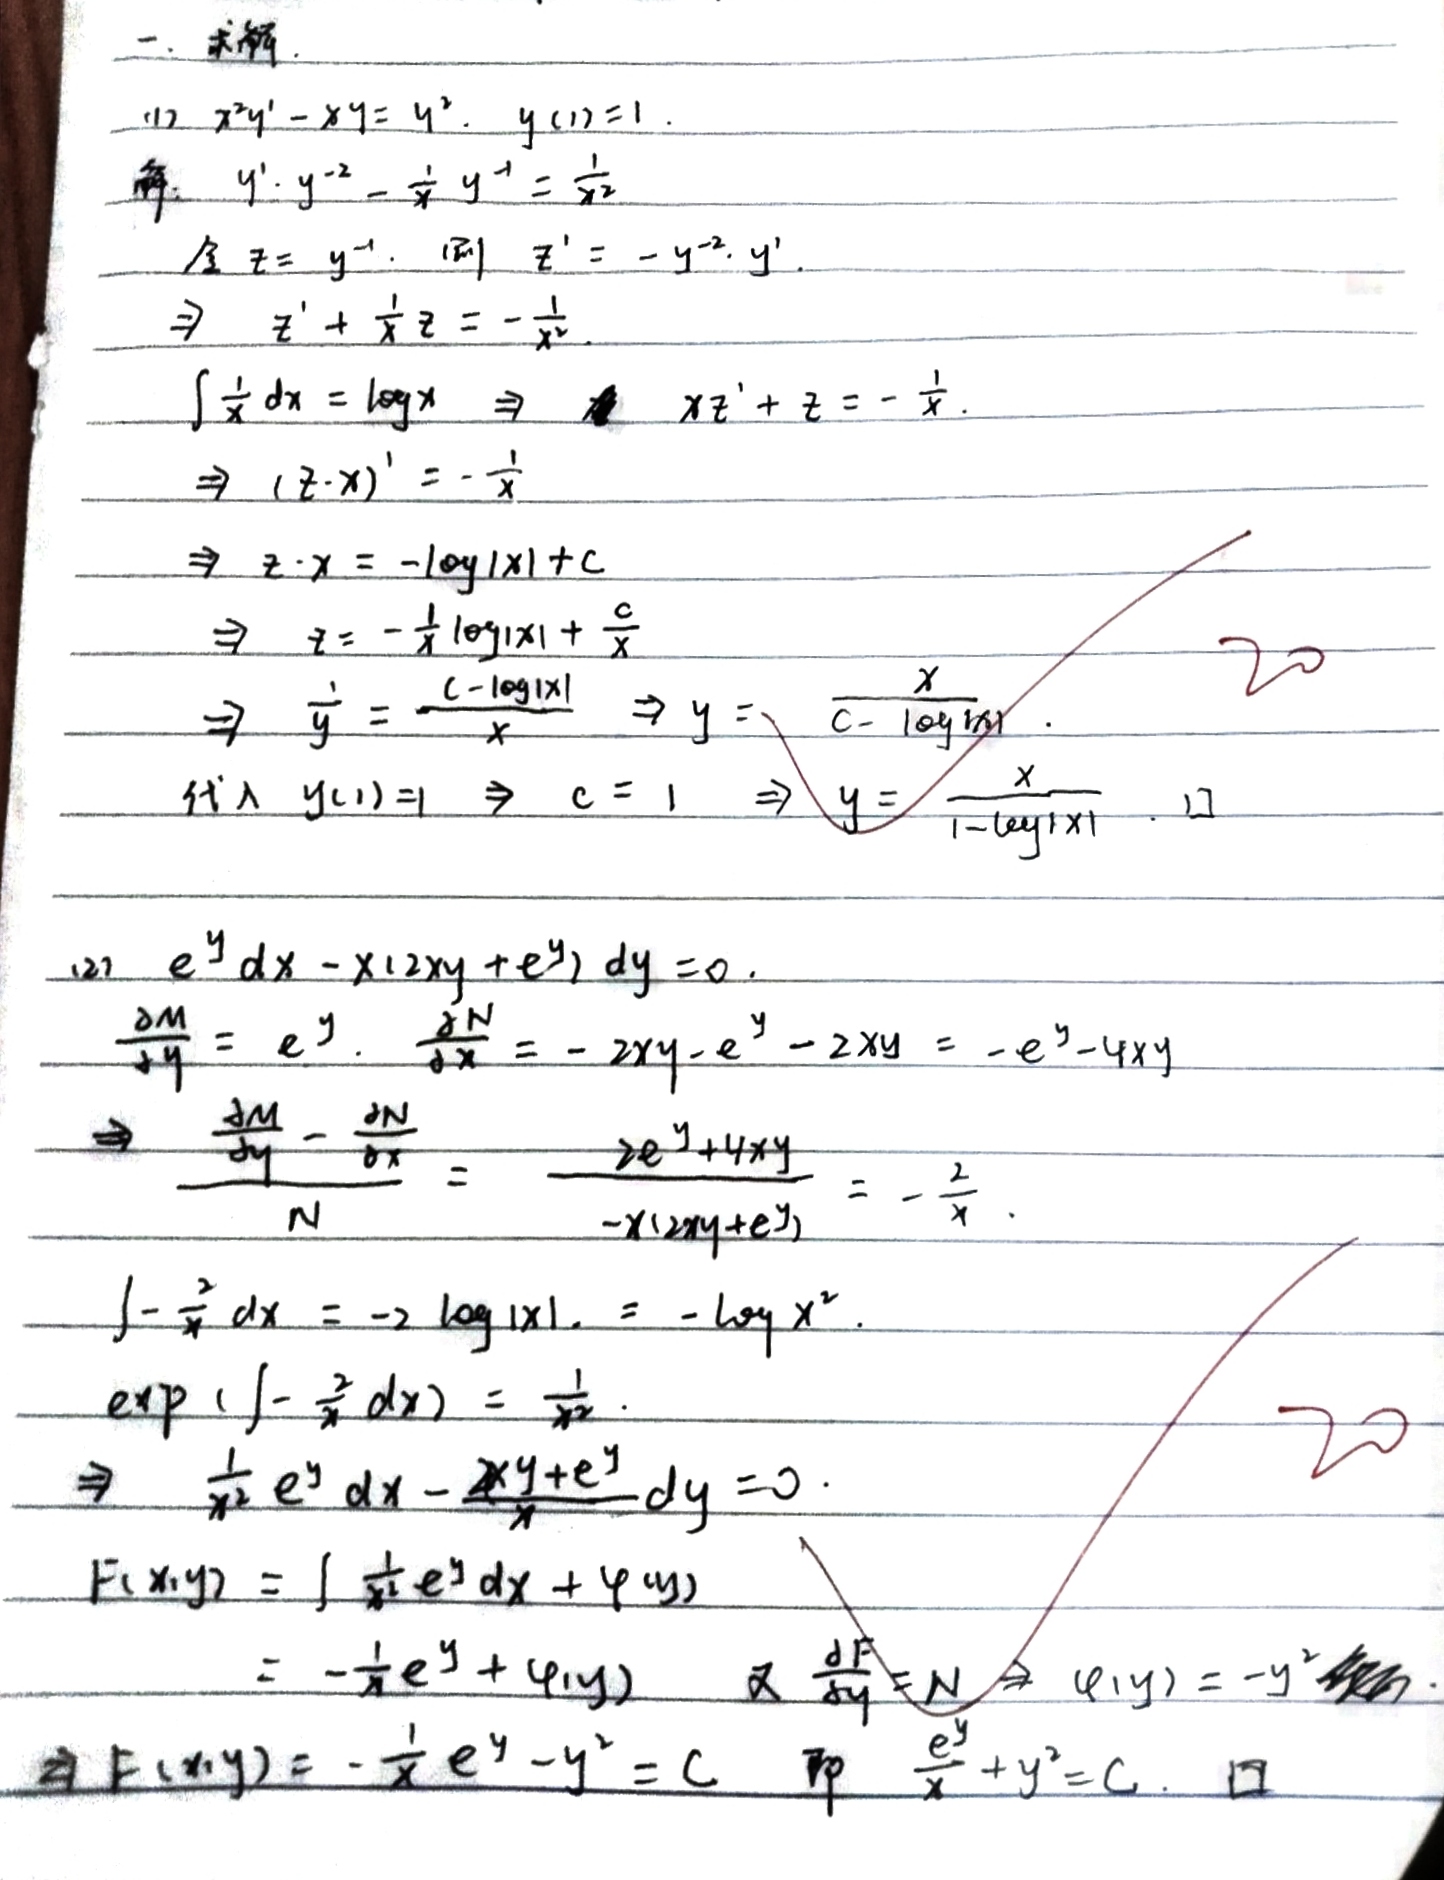 一. 求解.
(1) x²y' - xy = y². y(1)=1.
解. y'·y⁻² - 1/x y⁻¹ = 1/x²
令 z = y⁻¹. 则 z' = - y⁻²·y'.
⇒ z' + 1/x z = - 1/x².
∫ 1/x dx = logx ⇒ xz' + z = - 1/x.
⇒ (z·x)' = - 1/x
⇒ z·x = -log|x| + C
⇒ z = - 1/x log|x| + C/x
20
⇒ 1/y = (C-log|x|)/x ⇒ y = x/(C - log|x|).
代入 y(1)=1 ⇒ C = 1 ⇒ y = x/(1-log|x|). □
(2) e^y dx - x(2xy + e^y) dy = 0.
∂M/∂y = e^y. ∂N/∂x = - 2xy - e^y - 2xy = -e^y - 4xy
⇒ (∂M/∂y - ∂N/∂x)/N = (2e^y + 4xy)/(-x(2xy+e^y)) = - 2/x.
∫ - 2/x dx = -2 log|x|. = - log x².
exp(∫ - 2/x dx) = 1/x².
20
⇒ 1/x² e^y dx - (2xy+e^y)/x dy = 0.
F(x,y) = ∫ 1/x² e^y dx + φ(y)
= - 1/x e^y + φ(y) 又 ∂F/∂y = N ⇒ φ(y) = -y².
⇒ F(x,y) = - 1/x e^y - y² = C 即 e^y/x + y² = C. □